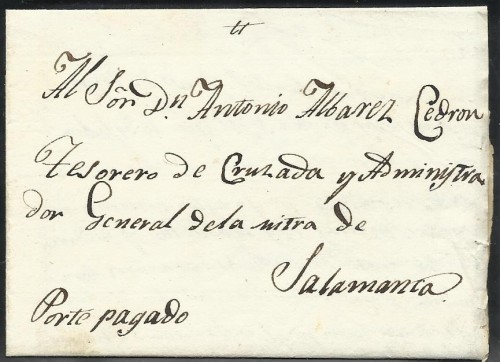 Al Sõr. Dn. Antonio Albarez Cedron
Tesorero de Cruzada y Administra
dor General dela mtra de
Salamanca
Porte pagado